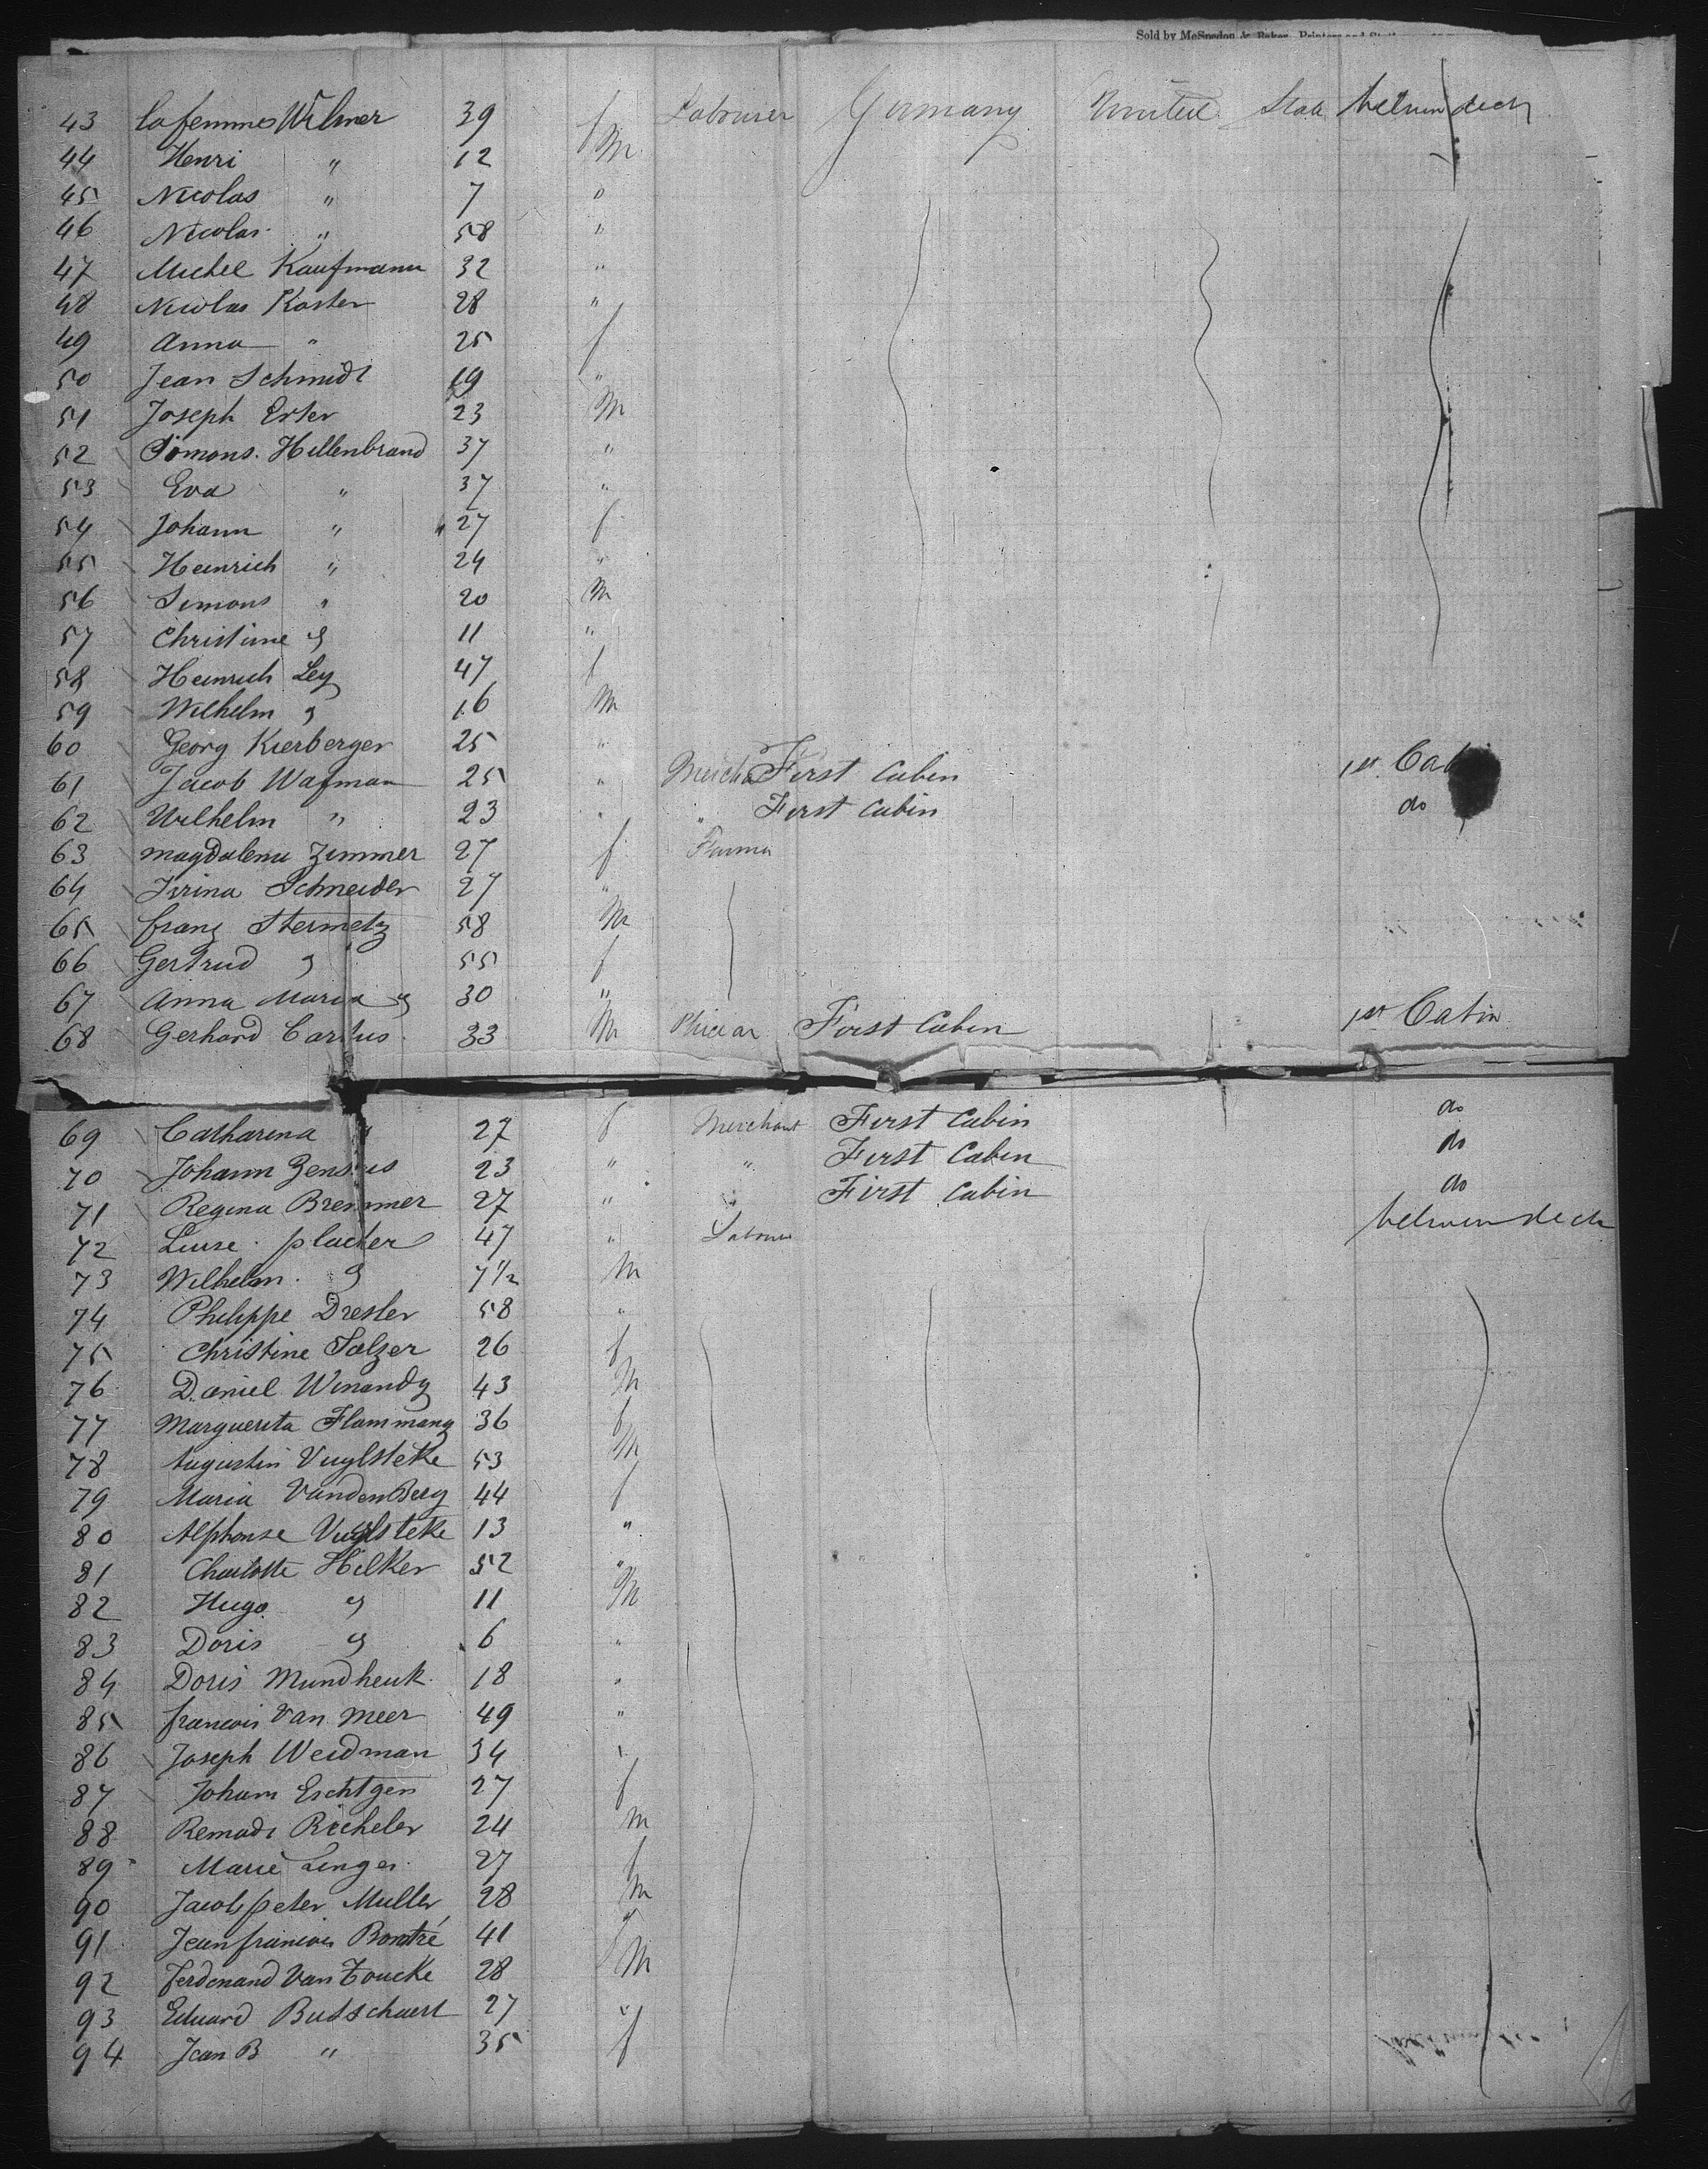 Sold by McSpedon & Baker, Printers and
43 la femme Wilmer 39 f Labourer Germany United States between deck
44 Henri " 12 M
45 Nicolas " 7 "
46 Nicolas " 58 "
47 Michel Kaufmann 32 "
48 Nicolas Koster 28 "
49 Anna " 25 f
50 Jean Schmidt 19 "
51 Joseph Erter 23 M
52 Simons Hellenbrand 37 "
53 Eva " 37 "
54 Johann " 27 f
55 Heinrich " 24 "
56 Simons " 20 M
57 Christine " 11 "
58 Heinrich Ley 47 f
59 Wilhelm " 16 M
60 Georg Kierberger 25 "
61 Jacob Wafman 25 " Mercha First Cabin 1st Cab
62 Wilhelm " 23 " " First Cabin do
63 Magdalena Zimmer 27 f Farmer
64 Irina Schneider 27 "
65 franz Stermetz 58 M
66 Gertrud " 55 f
67 Anna Maria " 30 "
68 Gerhard 33 M First Cabin 1st Cabin
69 Catharina " 27 f Merchant First Cabin do
70 Johann 23 " " First Cabin do
71 Regina Bremmer 27 " " First Cabin do
72 Luise placker 47 " Labourer between deck
73 Wilhelm " 7 1/2 M
74 Philippe Dresler 58 "
75 Christine Salzer 26 f
76 Daniel Winandy 43 M
77 Marguerita Flammang 36 f
78 Augustin Vuylsteke 53 M
79 Maria VandenBerg 44 f
80 Alphonse Vuylsteke 13 "
81 Charlotte Hilker 52 "
82 Hugo " 11 M
83 Doris " 6 "
84 Doris Mundhenk 18 "
85 francois Van Meer 49 "
86 Joseph Weidman 34 "
87 Johann Eschtgen 27 f
88 Richeler 24 M
89 Marie Linger 27 f
90 Jacob peter Muller 28 M
91 Jean francois 41 "
92 Ferdenand Van 28 M
93 Eduard Busschaert 27 "
94 Jean B " 35 f